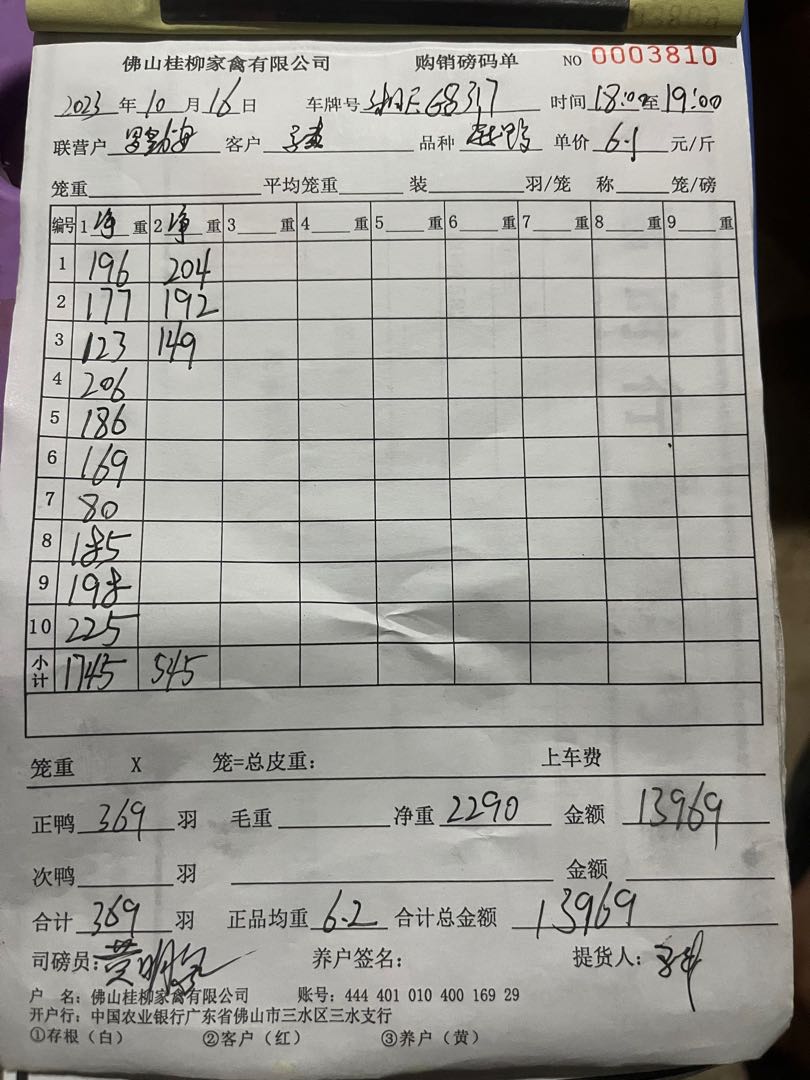 佛山桂柳家禽有限公司 购销磅码单 NO 0003810
2023 年 10 月 16 日 车牌号 G8317 时间 18:00 至 19:00
联营户 客户 品种 单价 6.1 元/斤
笼重 平均笼重 装 羽/笼 称 笼/磅
编号 1 净 重 2 净 重 3 重 4 重 5 重 6 重 7 重 8 重 9 重
1 196 204
2 177 192
3 123 149
4 206
5 186
6 169
7 80
8 185
9 198
10 225
小计 1745 545
笼重 X 笼=总皮重: 上车费
正鸭 369 羽 毛重 净重 2290 金额 13969
次鸭 羽 金额
合计 369 羽 正品均重 6.2 合计总金额 13969
司磅员: 养户签名: 提货人:
户 名: 佛山桂柳家禽有限公司 账号: 444 401 010 400 169 29
开户行: 中国农业银行广东省佛山市三水区三水支行
①存根(白) ②客户(红) ③养户(黄)